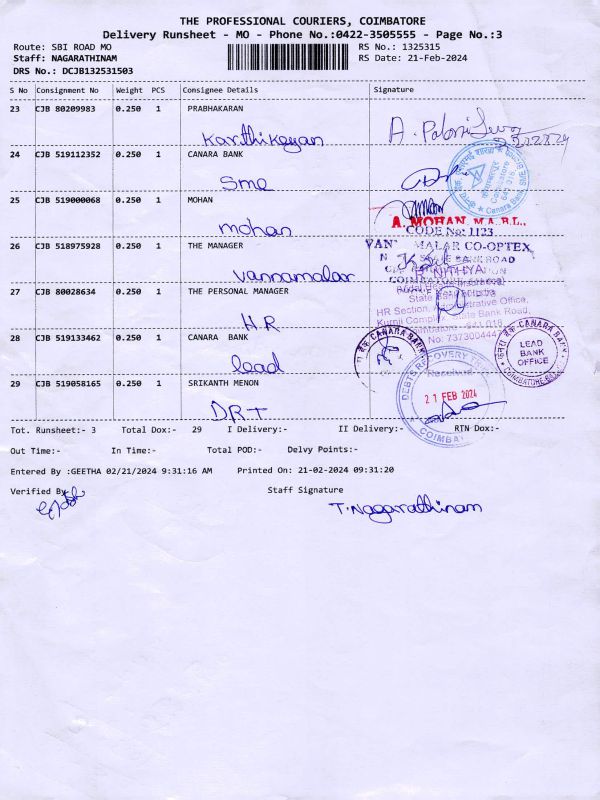 THE PROFESSIONAL COURIERS, COIMBATORE
Delivery Runsheet - MO - Phone No.:0422-3505555 - Page No.:3
Route: SBI ROAD MO
RS No.: 1325315
Staff: NAGARATHINAM
RS Date: 21-Feb-2024
DRS No.: DCJB132531503
S No Consignment No Weight PCS Consignee Details Signature
23 CJB 80209983 0.250 1 PRABHAKARAN
Karthikeyan
24 CJB 519112352 0.250 1 CANARA BANK
Sme
25 CJB 519000068 0.250 1 MOHAN
mohan
A. MOHAN, M.A.B.L.,
CODE No: 1123
26 CJB 518975928 0.250 1 THE MANAGER
Vannamalar
MALAR CO-OPTEX
BANK ROAD
27 CJB 80028634 0.250 1 THE PERSONAL MANAGER
HR
State
HR Section, Administrative Office,
Kurinji Complex, State Bank Road,
Coimbatore - 641 018
28 CJB 519133462 0.250 1 CANARA BANK
lead
CANARA BANK
CANARA BANK
LEAD
BANK
OFFICE
29 CJB 519058165 0.250 1 SRIKANTH MENON
DRT
DEBTS RECOVERY
Received
21 FEB 2024
Tot. Runsheet:- 3 Total Dox:- 29 I Delivery:- II Delivery:- RTN Dox:-
Out Time:- In Time:- Total POD:- Delvy Points:-
Entered By :GEETHA 02/21/2024 9:31:16 AM Printed On: 21-02-2024 09:31:20
Verified By
Staff Signature
T. Nagarathinam